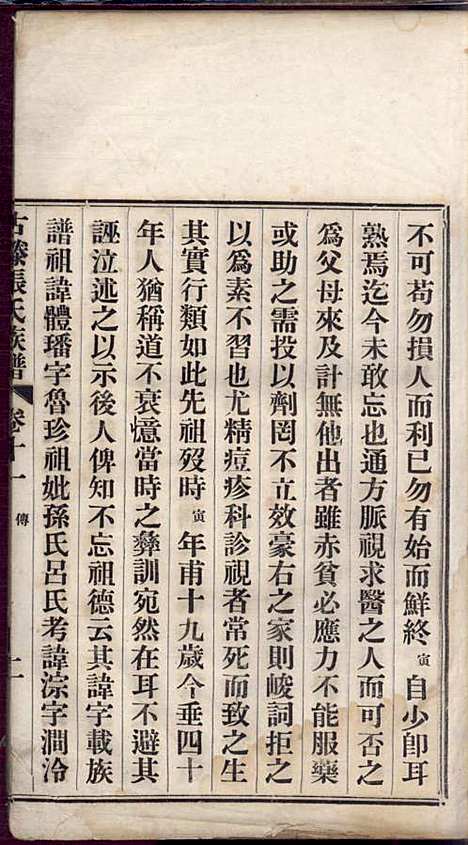 不可苟勿損人而利己勿有始而鮮終寅自少卽耳
熟焉迄今未敢忘也通方脈視求醫之人而可否之
爲父母來及計無他出者雖赤貧必應力不能服藥
或助之需投以劑罔不立效豪右之家則峻詞拒之
以爲素不習也尤精痘疹科診視者常死而致之生
其實行類如此先祖歿時寅年甫十九歲今垂四十
年人猶稱道不衰憶當時之彝訓宛然在耳不避其
誣泣述之以示後人俾知不忘祖德云其諱字載族
譜祖諱體璠字魯珍祖妣孫氏呂氏考諱淙字澗泠
古滕張氏族譜 卷十一 傳